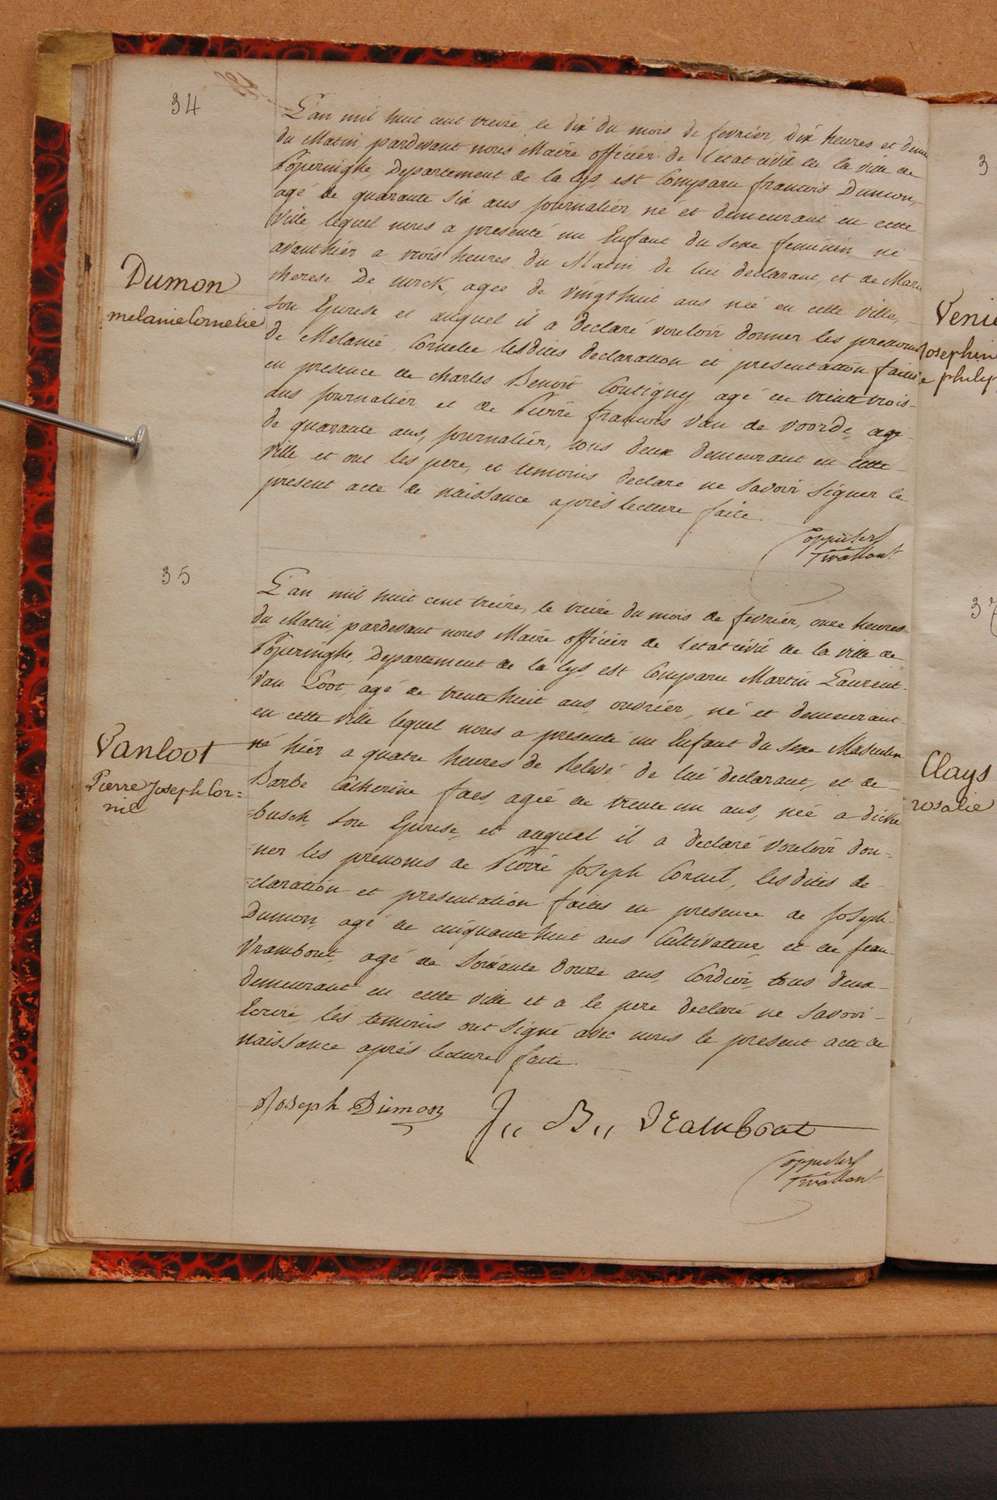 34
L'an mil huit cent treize le dix du mois de fevrier dix heures et demi
du Matin pardevant nous Maire officier de l'etat civil de la ville de
Poperinghe, Departement de la Lys, est Comparu francois Dumon,
agé de quarante six ans journalier né et demeurant en cette
Ville lequel nous a presenté un Enfant du sexe feminin né
avanthier a trois heures du Matin de lui declarant, et de Marie
therese De agée de vingthuit ans née en cette ville,
son Epouse et auquel il a declaré vouloir donner les prenoms
de Melanie Cornelie lesdites declaration et presentation faites
en presence de Charles Benoit Coutigny agé de trente trois
ans journalier et de Pierre francois Van de voorde agé
de quarante ans, journalier, tous deux demeurant en cette
Ville et ont les pere, et temoins declaré ne savoir signer le
present acte de naissance après lecture faite.
Dumon
melanie Cornelie
35
L'an mil huit cent treize, le treize du mois de fevrier, onze heures
du Matin pardevant nous Maire officier de l'etat civil de la ville de
Poperinghe, Departement de la Lys, est Comparu Martin Laurent
Van Loot, agé de trente huit ans ouvrier, né et demeurant
en cette Ville lequel nous a presenté un Enfant du sexe Masculin
né hier a quatre heures de Relevé de lui declarant, et de
Barbe Catherine faes agée de trente un ans, née a dicke
busch, son Epouse, et auquel il a declaré vouloir don=
ner les prenoms de Pierre Joseph Cornil, lesdites de-
claration et presentation faites en presence de Joseph
Dumon, agé de cinquante huit ans Cultivateur et de jean
Vrambout, agé de soixante douze ans, Cordier, tous deux
demeurant en cette ville et a le pere declaré ne savoir
Ecrire les temoins ont signé avec nous le present acte de
naissance après lecture faite.
Vanloot
Pierre Joseph Cor=
nil
Joseph Dumon J,, B,, Vrambout
3
Venie
Josephin
e philip
37
Clays
rosalie